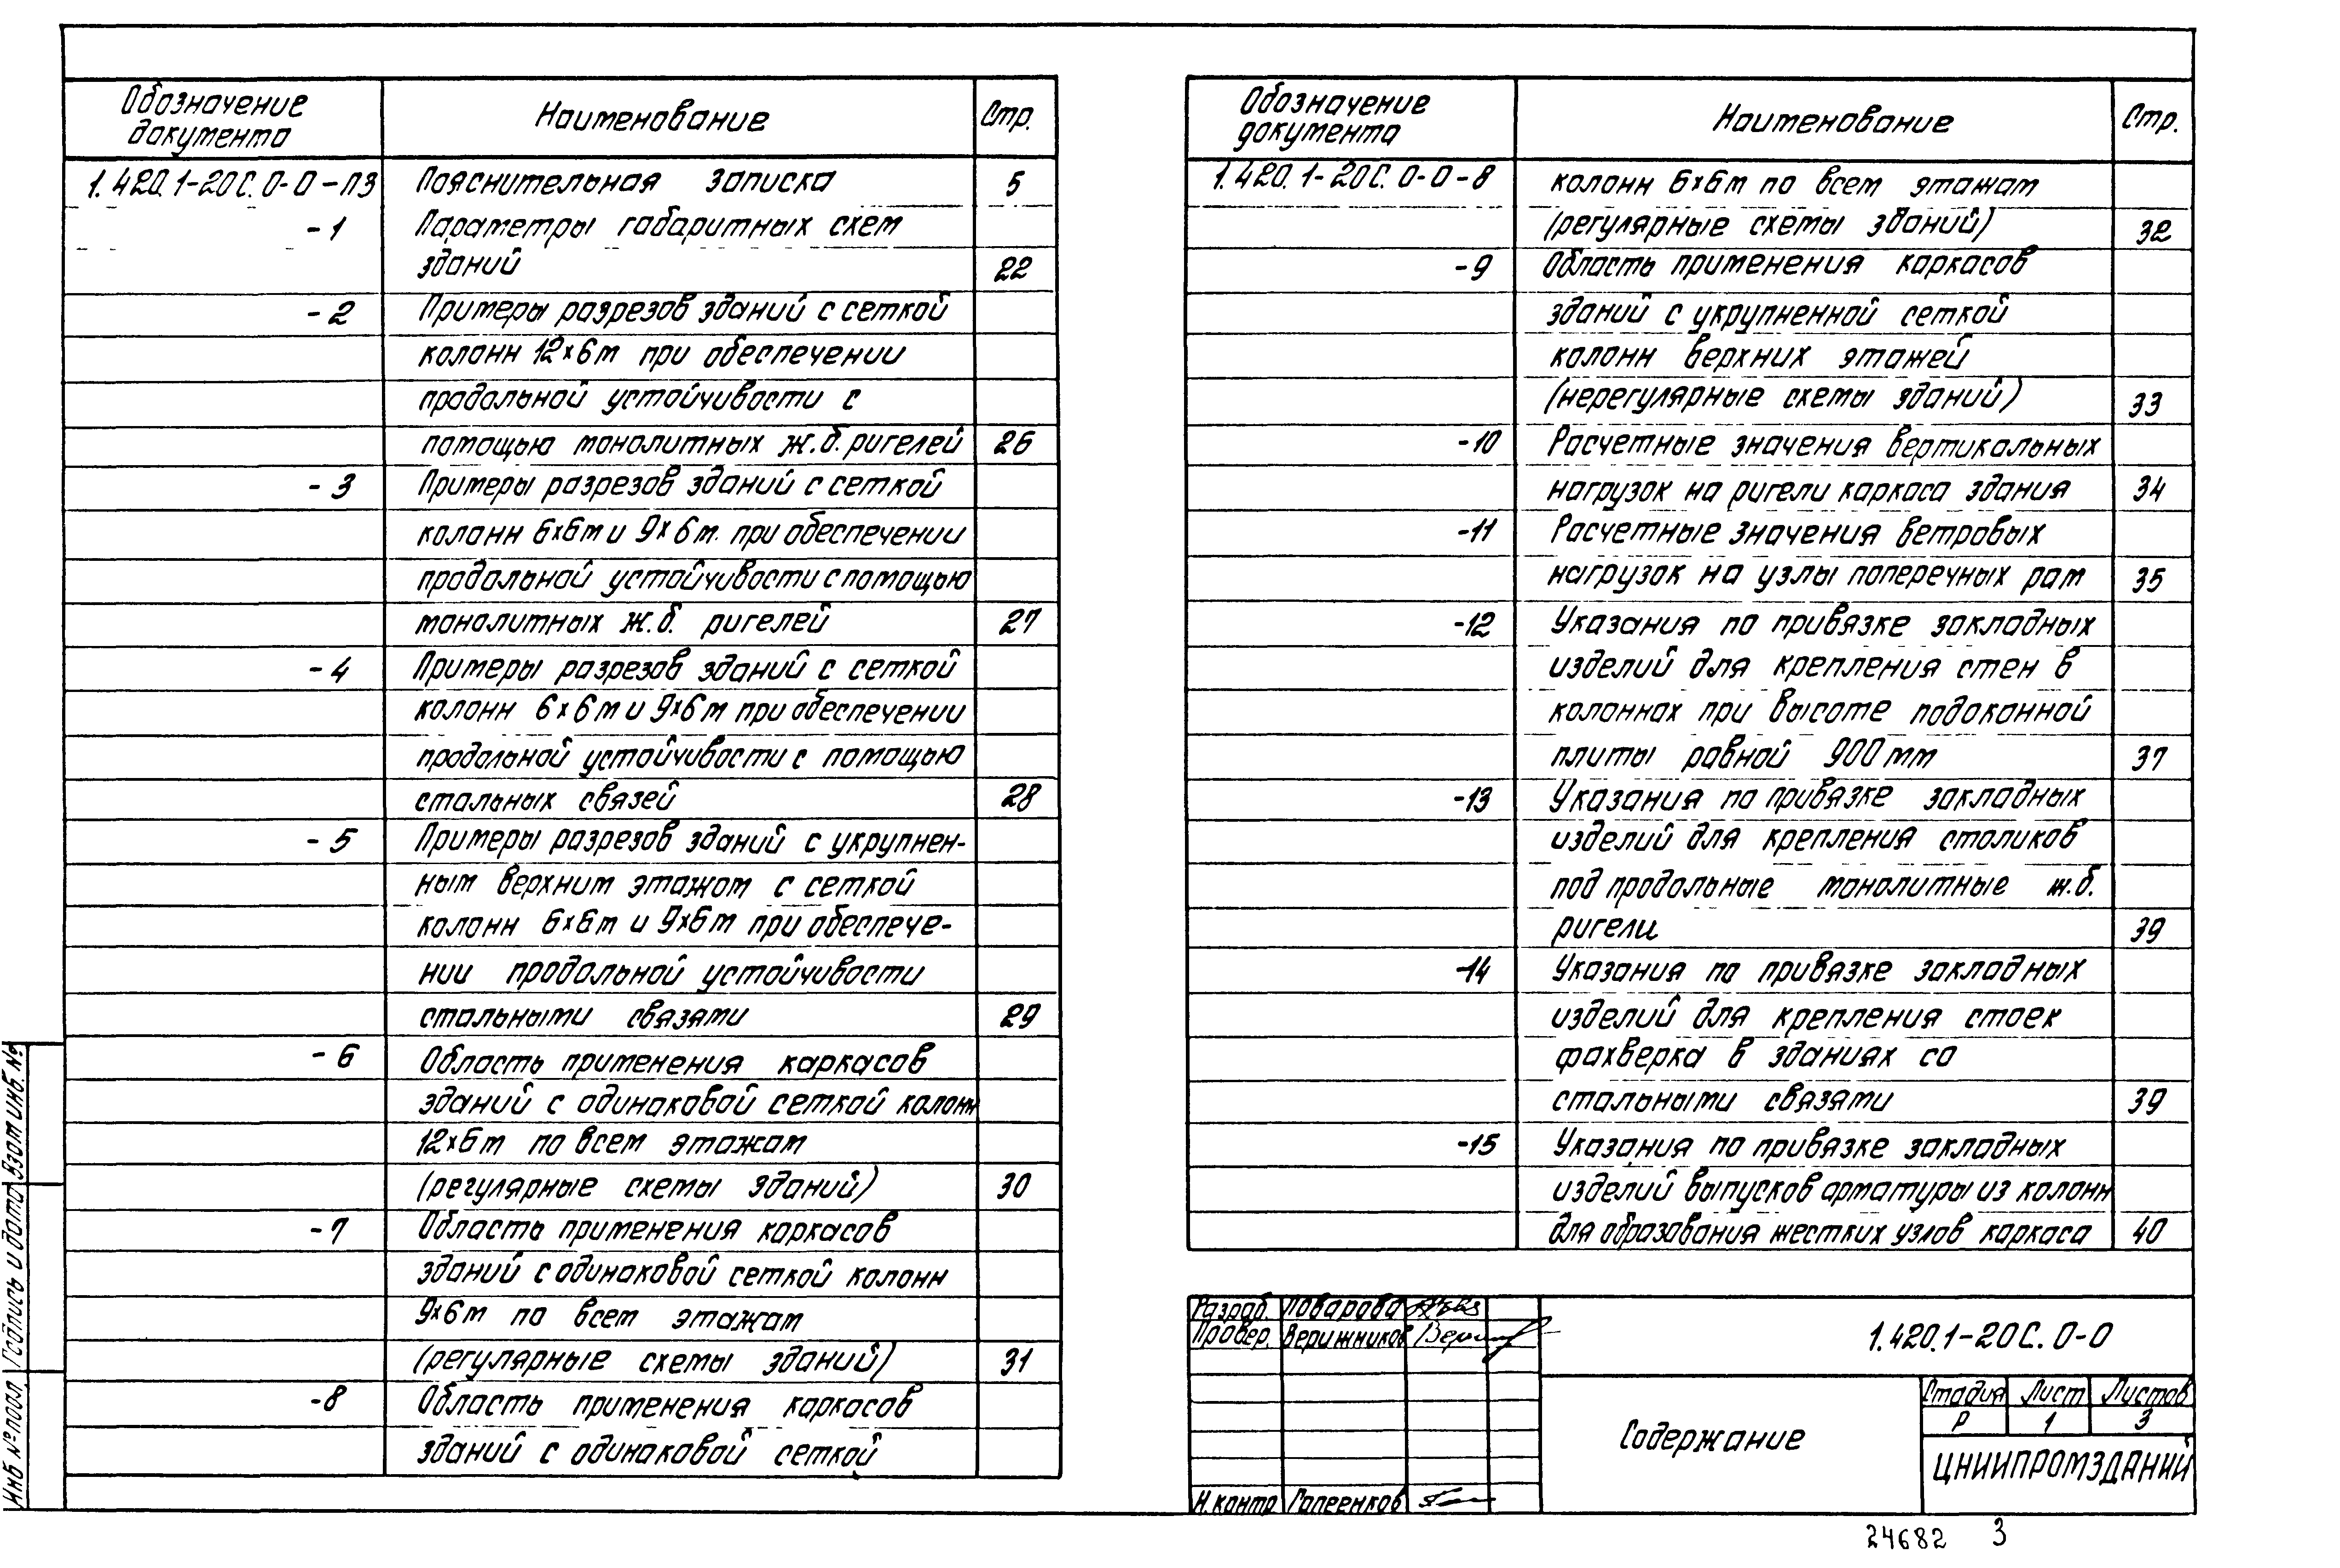 Обозначение документа Наименование Стр.
1.420.1-20С.0-0-ПЗ Пояснительная записка 5
-1 Параметры габаритных схем
зданий 22
-2 Примеры разрезов зданий с сеткой
колонн 12×6м при обеспечении
продольной устойчивости с
помощью монолитных ж.б. ригелей 26
-3 Примеры разрезов зданий с сеткой
колонн 6×6м и 9×6м. при обеспечении
продольной устойчивости с помощью
монолитных ж.б. ригелей 27
-4 Примеры разрезов зданий с сеткой
колонн 6×6м и 9×6м при обеспечении
продольной устойчивости с помощью
стальных связей 28
-5 Примеры разрезов зданий с укрупнен-
ным верхним этажом с сеткой
колонн 6×6м и 9×6м при обеспече-
нии продольной устойчивости
стальными связями 29
-6 Область применения каркасов
зданий с одинаковой сеткой колонн
12×6м по всем этажам
(регулярные схемы зданий) 30
-7 Область применения каркасов
зданий с одинаковой сеткой колонн
9×6м по всем этажам
(регулярные схемы зданий) 31
-8 Область применения каркасов
зданий с одинаковой сеткой
Обозначение документа Наименование Стр.
1.420.1-20С.0-0-8 колонн 6×6м по всем этажам
(регулярные схемы зданий) 32
-9 Область применения каркасов
зданий с укрупненной сеткой
колонн верхних этажей
(нерегулярные схемы зданий) 33
-10 Расчетные значения вертикальных
нагрузок на ригели каркаса здания 34
-11 Расчетные значения ветровых
нагрузок на узлы поперечных рам 35
-12 Указания по привязке закладных
изделий для крепления стен в
колоннах при высоте подоконной
плиты равной 900мм 37
-13 Указания по привязке закладных
изделий для крепления столиков
под продольные монолитные ж.б.
ригели 39
-14 Указания по привязке закладных
изделий для крепления стоек
фахверка в зданиях со
стальными связями 39
-15 Указания по привязке закладных
изделий выпусков арматуры из колонн
для образования жестких узлов каркаса 40
Разраб. Поварова
Провер. Верижников
Н.контр Гапеенков
1.420.1-20С.0-0
Содержание
Стадия Лист Листов
Р 1 3
ЦНИИПРОМЗДАНИЙ
Инв № подл Подпись и дата Взам инв №
24682 3